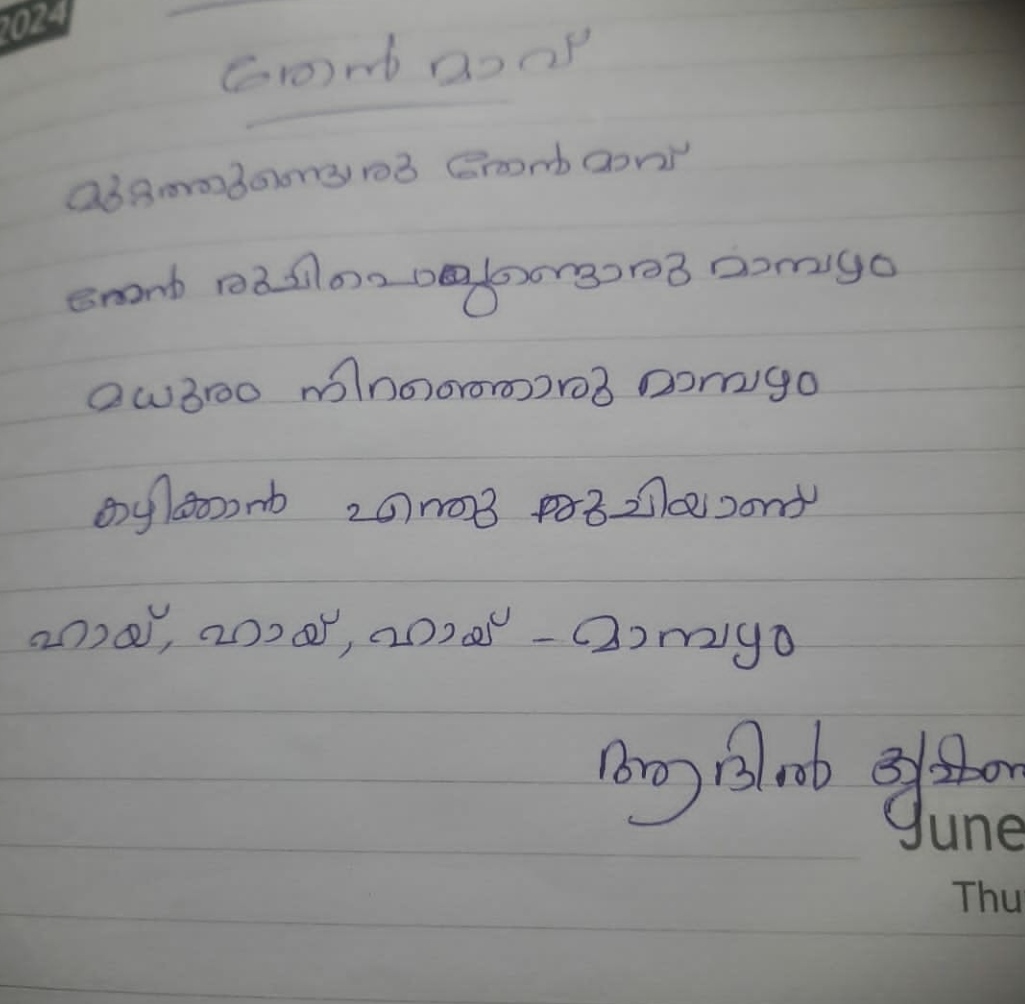 2024
തേൻ മാവ്
മുറ്റത്തുണ്ടൊരു തേൻ മാവ്
തേൻ രുചി മാമ്പഴം
മധുരം നിറഞ്ഞൊരു മാമ്പഴം
കഴിക്കാൻ എന്തു രുചിയാണ്
ഹായ്, ഹായ്, ഹായ് - മാമ്പഴം
ആദിൽ
June
Thu